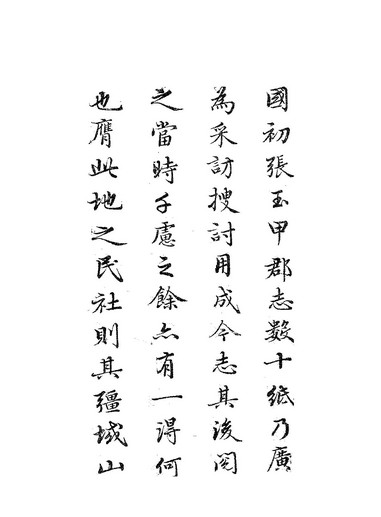 國初張玉甲郡志数十紙乃廣
為采訪搜討用成今志其後閲
之當時千慮之餘亦有一得何
也膺此地之民社則其疆域山